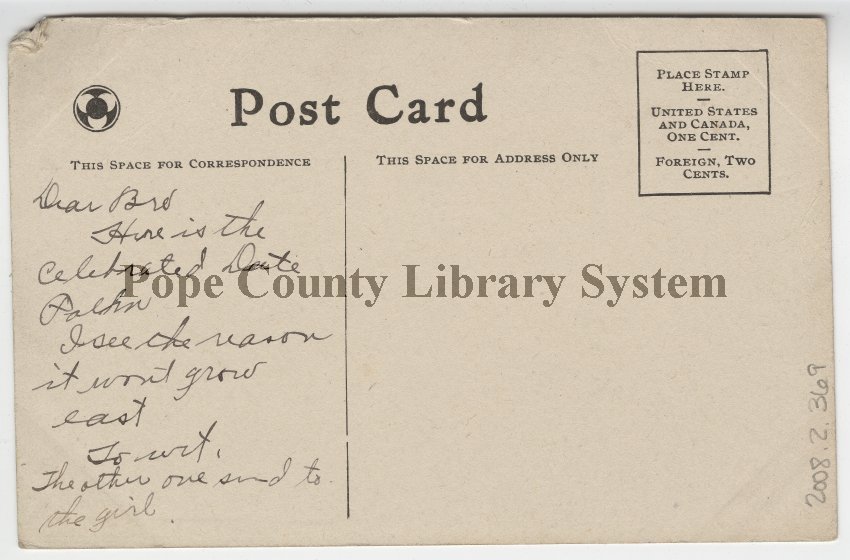 Post Card
PLACE STAMP
HERE.
UNITED STATES
AND CANADA,
ONE CENT.
FOREIGN, TWO
CENTS.
THIS SPACE FOR CORRESPONDENCE
THIS SPACE FOR ADDRESS ONLY
Dear Bro
Here is the
Celebrated Date
Palm
I see the reason
it wont grow
east
To wit,
The other one send to
the girl.
Pope County Library System
2008.2.369